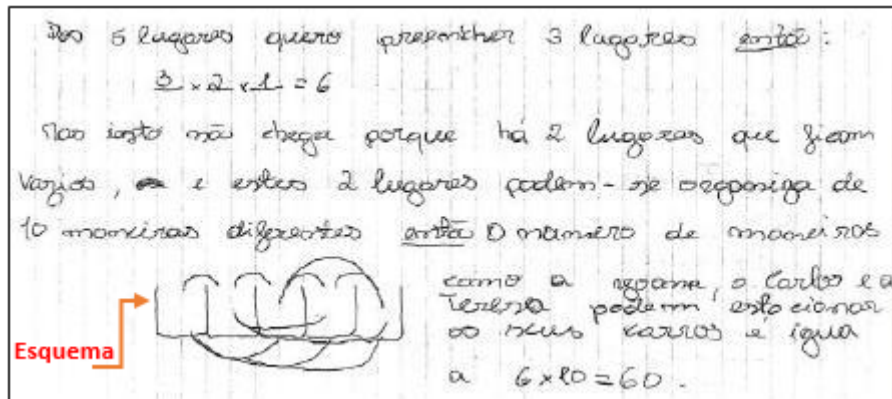 Dos 5 lugares quero preencher 3 lugares então:
3 x 2 x 1 = 6
Mas isto não chega porque há 2 lugares que ficam
vazios, e estes 2 lugares podem-se de
10 maneiras diferentes então o número de maneiras
como a o Carlos e a
Teresa podem estacionar
os seus carros é igua
a 6 x 10 = 60.
Esquema